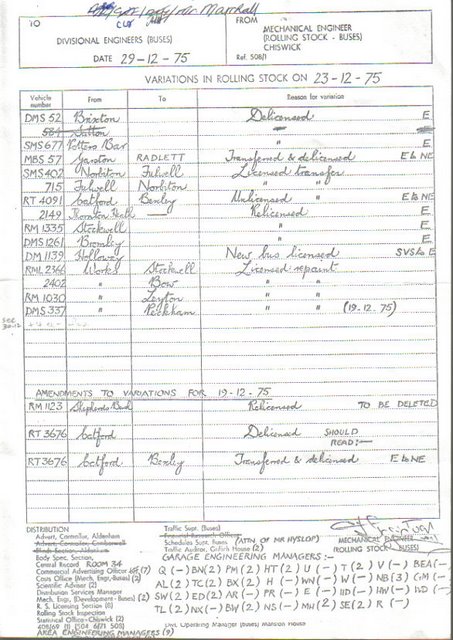 TO
DIVISIONAL ENGINEERS (BUSES)
DATE 29-12-75
FROM
MECHANICAL ENGINEER
(ROLLING STOCK - BUSES)
CHISWICK
Ref. 508/1
VARIATIONS IN ROLLING STOCK ON 23-12-75
Vehicle number From To Reason for variation
DMS 52 Brixton Delicensed E
584 Sutton
SMS 677 Potters Bar " E
MBS 57 Garston RADLETT Transferred & delicensed E to NE
SMS 402 Norbiton Fulwell Licensed transfer
715 Fulwell Norbiton " "
RT 4091 Catford Bexley Unlicensed " E to NE
2149 Thornton Heath — Relicensed E
RM 1335 Stockwell " E
DMS 1261 Bromley " E
DM 1139 Holloway New bus licensed SVS to E
RML 2366 Works Stockwell Licensed repaint
2402 " Bow " "
RM 1030 " Leyton " "
DMS 337 " Peckham " " (19-12-75)
SEE
30-12
AMENDMENTS TO VARIATIONS FOR 19-12-75
RM 1123 Shepherds Bush Relicensed TO BE DELETED
RT 3676 Catford Delicensed SHOULD READ:—
RT 3676 Catford Bexley Transferred & delicensed E to NE
DISTRIBUTION
Advert. Controller, Aldenham
Body Spec. Section,
Central Record ROOM 34
Commercial Advertising Officer (7)
Costs Office (Mech. Engr. Buses) (2)
Scientific Adviser (2)
Distribution Services Manager
Mech. Engr. (Development - Buses) (2)
R. S. Licensing Section (8)
Rolling Stock Inspection
Statistical Office - Chiswick (2)
AREA ENGINEERING MANAGERS (9)
Traffic Supt. (Buses)
Schedules Supt. Buses (ATTN OF MR HYSLOP)
Traffic Auditor, Griffith House (2)
MECHANICAL ENGINEER
(ROLLING STOCK BUSES)
GARAGE ENGINEERING MANAGERS :-
Q (-) BN (2) PM (2) HT (2) U (-) T (2) V (-) BEA (-)
AL (2) TC (2) BX (2) H (-) WN (-) W (-) NB (3) GM (-)
SW (2) ED (2) AR (-) PR (-) E (-) HW (-)
TL (2) NX (-) BW (2) NS (-) MH (2) SE (2) R (-)
Divl. Operating Manager (Buses) Mansion House